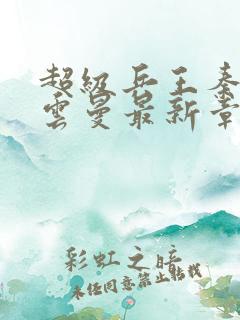 超级兵王秦
云曼最新章
彩虹之暗
未经同意禁止转载